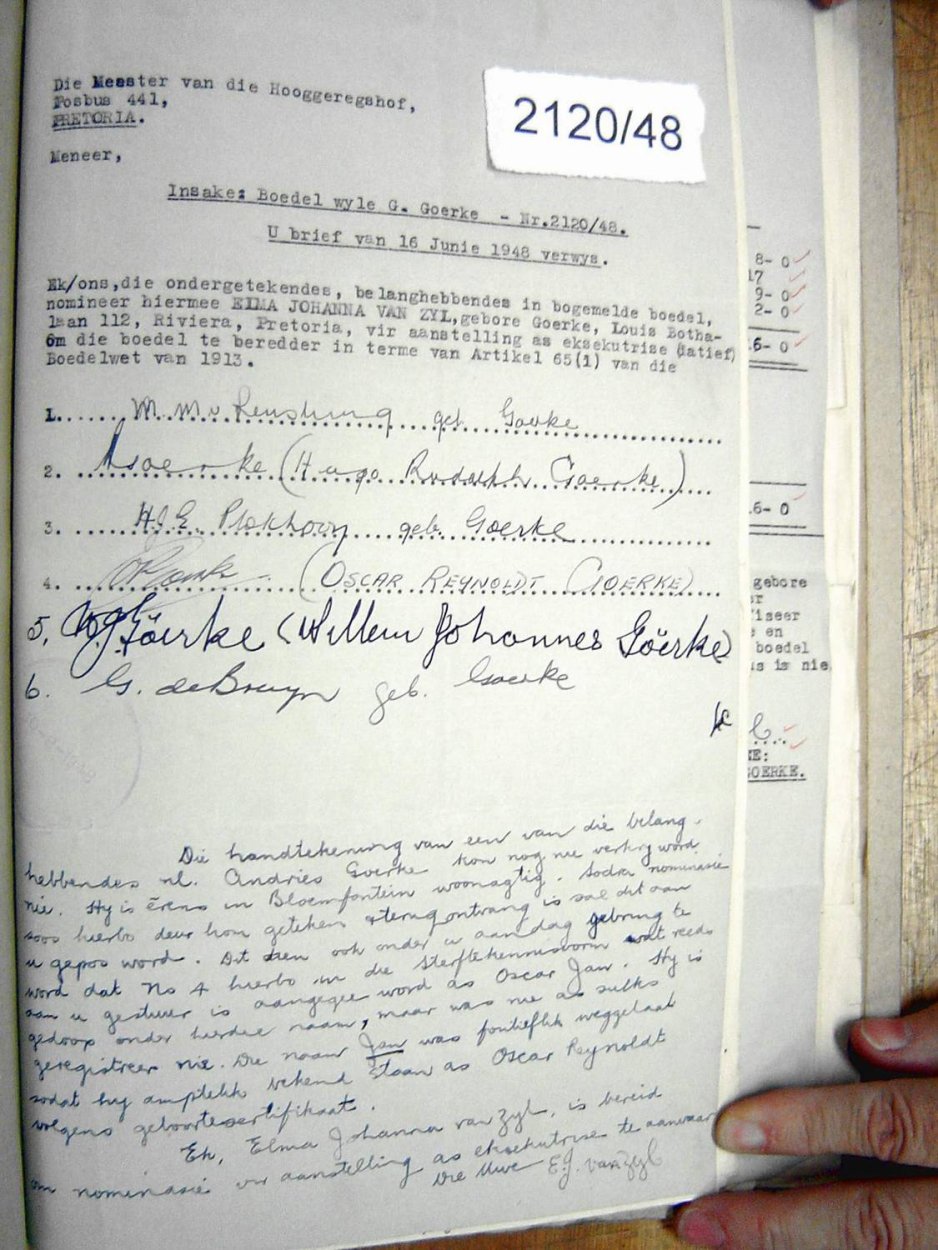 Die Meester van die Hooggeregshof,
Posbus 441,
PRETORIA.
2120/48
Meneer,
Insake: Boedel wyle G. Goerke - Nr.2120/48.
U brief van 16 Junie 1948 verwys.
Ek/ons,die ondergetekendes, belanghebbendes in bogemelde boedel,
nomineer hiermee ELMA JOHANNA VAN ZYL,gebore Goerke, Louis Botha-
laan 112, Riviera, Pretoria, vir aanstelling as eksekutrise (datief)
om die boedel te beredder in terme van Artikel 65(1) van die
Boedelwet van 1913.
1. M. M. v Rensburg geb. Goerke
2. Goerke (Hugo Rudolph Goerke)
3. H.J.E. Plokhooy geb. Goerke
4. (OSCAR REYNOLDT GOERKE)
5. W.J. Göerke (Willem Johannes Göerke)
6. G. de Bruyn geb. Goerke
Die handtekening van een van die belang-
hebbendes nl. Andries Goerke kon nog nie verkry word
nie. Hy is êrens in Bloemfontein woonagtig. Sodra nominasie
soos hierbo deur hom geteken & terug ontvang is sal dit aan
u gepos word. Dit dien ook onder u aandag gebring te
word dat No 4 hierbo in die Sterfkennisvorm wat reeds
aan u gestuur is aangegee word as Oscar Jan. Hy is
gedoop onder hierdie naam, maar was nie as sulks
geregistreer nie. Die naam Jan was foutieflik weggelaat
sodat hy amptelik bekend staan as Oscar Reynoldt
volgens geboortesertifikaat.
Ek, Elma Johanna van Zyl, is bereid
om nominasie vir aanstelling as eksekutrise te aanvaar
Die Uwe E.J. van Zyl
8- 0
17
9- 0
2- 0
6- 0
6- 0
gebore
iseer
en
boedel
is nie
GOERKE.